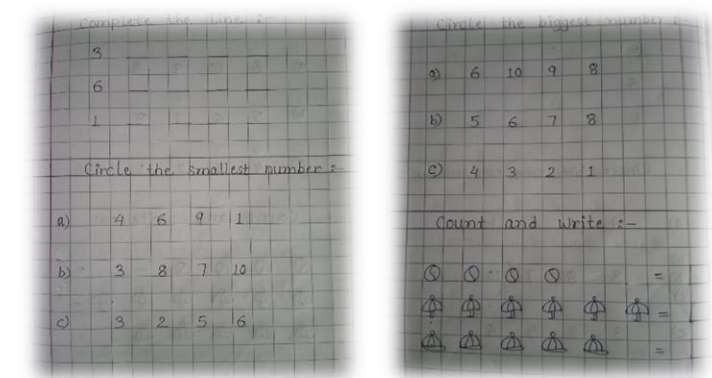 Complete the line :-
3 __ __ __ __
6 __ __ __ __
1 __ __ __ __
Circle the smallest number :-
a) 4 6 9 1
b) 3 8 7 10
c) 3 2 5 6
Circle the biggest number :-
a) 6 10 9 8
b) 5 6 7 8
c) 4 3 2 1
Count and write :-
=
=
=